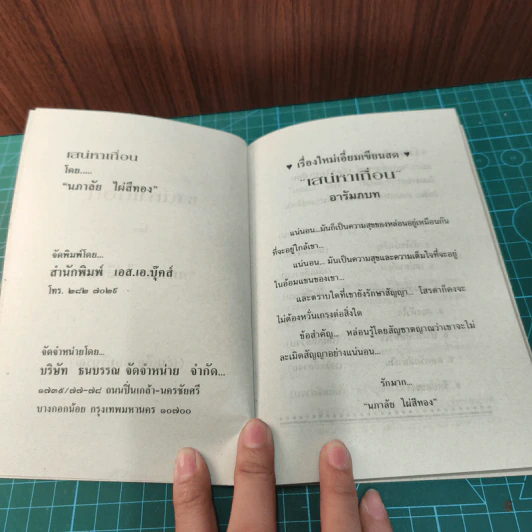 เสน่หาเถื่อน
โดย.....
"นภาลัย ไผ่สีทอง"
จัดพิมพ์โดย...
สำนักพิมพ์ เอส.เอ.บุ๊คส์
โทร. ๒๘๒ ๗๐๒๙
จัดจำหน่ายโดย...
บริษัท ธนบรรณ จัดจำหน่าย จำกัด...
๑๗๓๕/๗๗-๗๘ ถนนปิ่นเกล้า-นครชัยศรี
บางกอกน้อย กรุงเทพมหานคร ๑๐๗๐๐
♥ เรื่องใหม่เอี่ยมเขียนสด ♥
"เสน่หาเถื่อน"
อารัมภบท
แน่นอน...มันก็เป็นความสุขของหล่อนอยู่เหมือนกัน
ที่จะอยู่ใกล้เขา...
แน่นอน... มันเป็นความสุขและความเต็มใจที่จะอยู่
ในอ้อมแขนของเขา...
และตราบใดที่เขายังรักษาสัญญา... โสรดาก็คงจะ
ไม่ต้องหวั่นเกรงต่อสิ่งใด
ข้อสำคัญ... หล่อนรู้โดยสัญชาตญาณว่าเขาจะไม่
ละเมิดสัญญาอย่างแน่นอน...
รักมาก...
"นภาลัย ไผ่สีทอง"